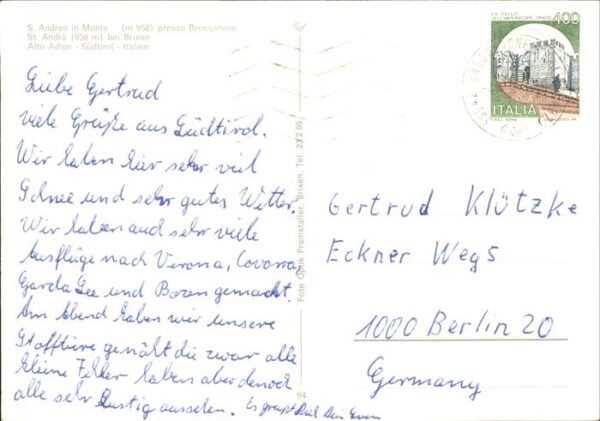 S. Andrea in Monte (m 958) presso Bressanone
St. Andrä (958 m) bei Brixen
Alto Adige - Südtirol - Italien
Liebe Gertrud
viele Grüße aus Südtirol.
Wir haben hier sehr viel
Schnee und sehr gutes Wetter.
Wir haben auch sehr viele
Ausflüge nach Verona,
Garda See und Bozen gemacht.
Am Abend haben wir unsere
Stofftiere genäht die zwar alle
kleine Fehler haben aber denoch
alle sehr lustig aussehen. Es grüßt Dich Dein
Foto Optik Pramstaller, Brixen, Tel. 23266
94
400
ITALIA
Gertrud Klützke
Eckner Weg 5
1000 Berlin 20
Germany